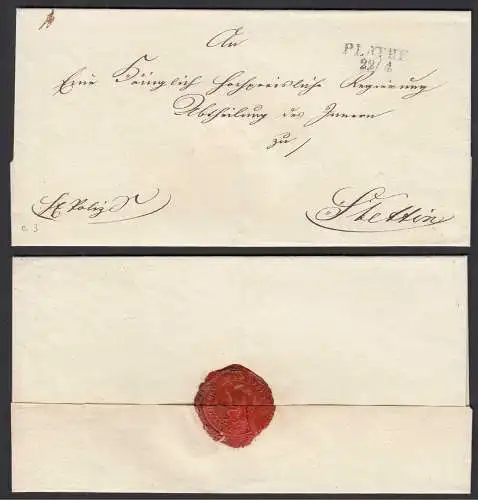 An
PLATHE
22/4
Eine Königlich Hochpreisliche Regierung
Abtheilung des Innern
zu
Stettin
c. 3